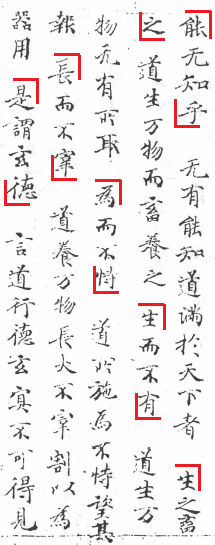 能无知乎　无有能知道滿於天下者　生之畜
之　道生万物而畜養之　生而不有　道生万
物无有所取　為而不恃　道所施為不恃望其
報　長而不宰　道養万物長大不宰割以為
器用　是謂玄德　言道行德玄冥不可得見